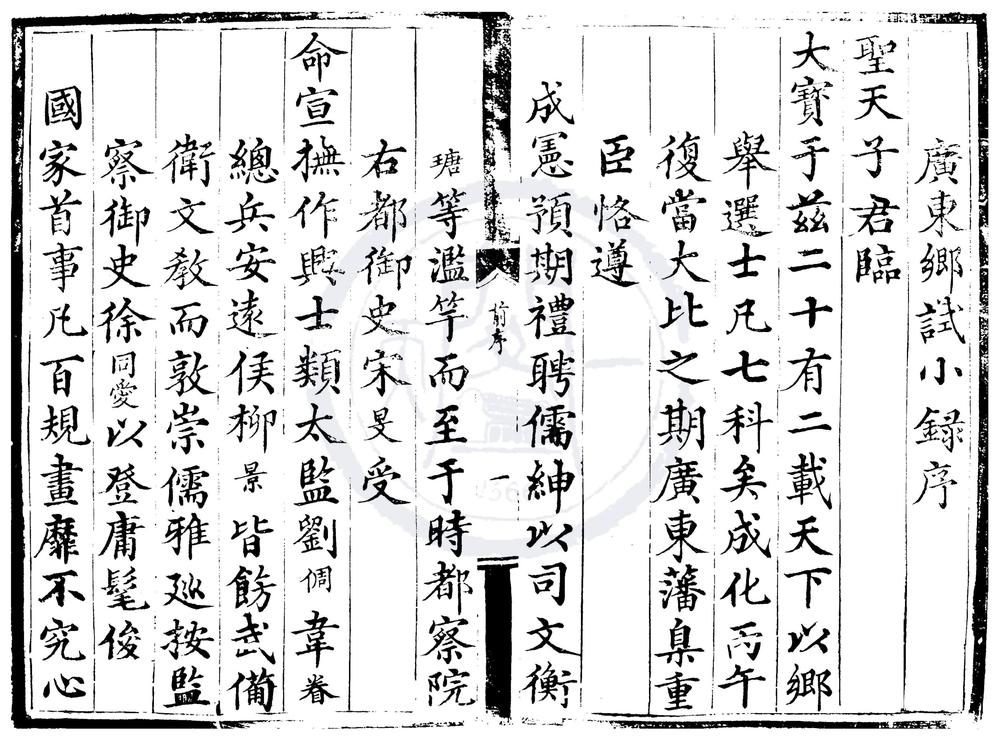 廣東鄉試小錄序
聖天子君臨
大寶于茲二十有二載天下以鄉
舉選士凡七科矣成化丙午
復當大比之期廣東藩臬重
臣恪遵
成憲預期禮聘儒紳以司文衡
前序 一
瑭等濫竽而至于時都察院
右都御史宋旻受
命宣撫作興士類太監劉倜韋眷
總兵安遠侯柳景皆餝武備
衛文敎而敦崇儒雅廵按監
察御史徐同愛以登庸髦俊
國家首事凡百規畫靡不究心